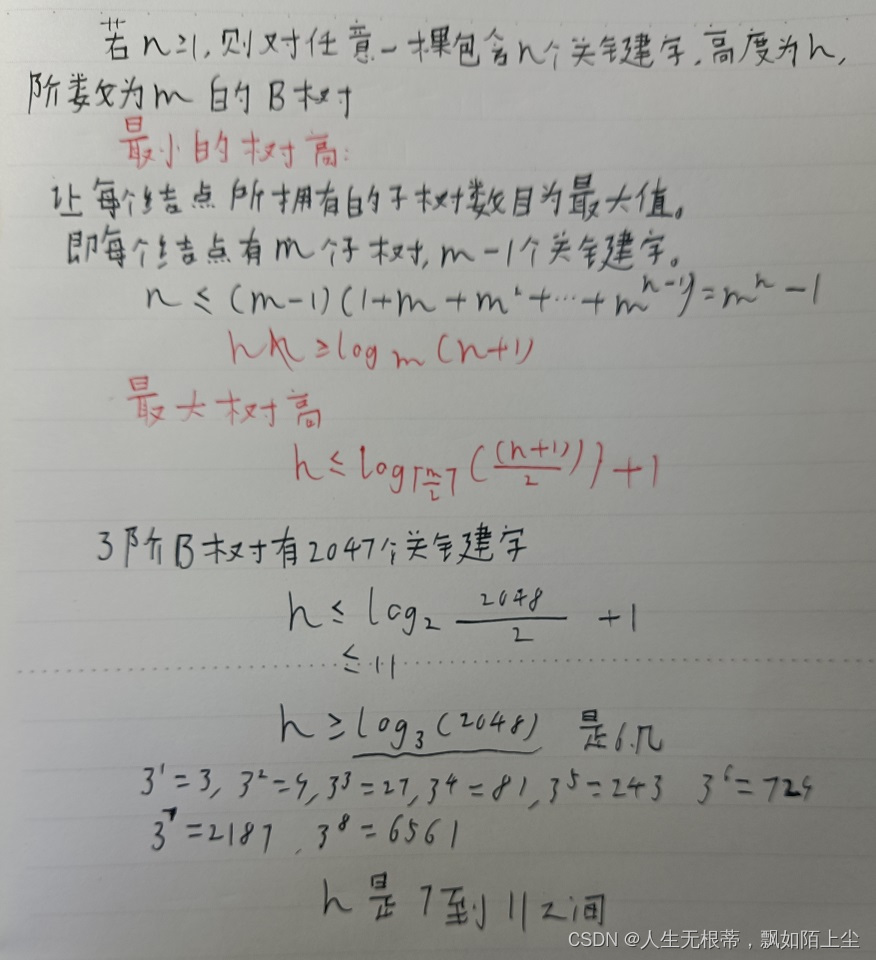 若n≥1,则对任意一棵包含n个关键字,高度为h,
阶数为m的B树
最小的树高:
让每个结点所拥有的子树数目为最大值。
即每个结点有m个子树,m-1个关键字。
n ≤ (m-1)(1+m+m²+…+m^{h-1})=m^h-1
h ≥ log_m(n+1)
最大树高
h ≤ log_{⌈m/2⌉}((n+1)/2))+1
3阶B树有2047个关键字
h ≤ log₂ 2048/2 +1
≤11
h ≥ log₃(2048) 是6.几
3¹=3, 3²=9, 3³=27, 3⁴=81, 3⁵=243 3⁶=729
3⁷=2187, 3⁸=6561
h是7到11之间
CSDN @人生无根蒂,飘如陌上尘